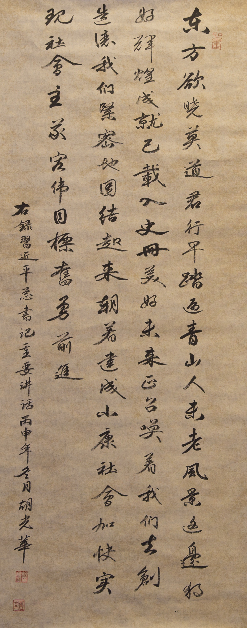 东方欲晓莫道君行早踏遍青山人未老風景这邊独
好輝煌成就已載入史册美好未来正召唤着我们去創
造让我们緊密地团结起来朝着建成小康社會加快实
现社會主义宏伟目標奮勇前進
右録習近平总書记重要讲话丙申年冬月胡光華